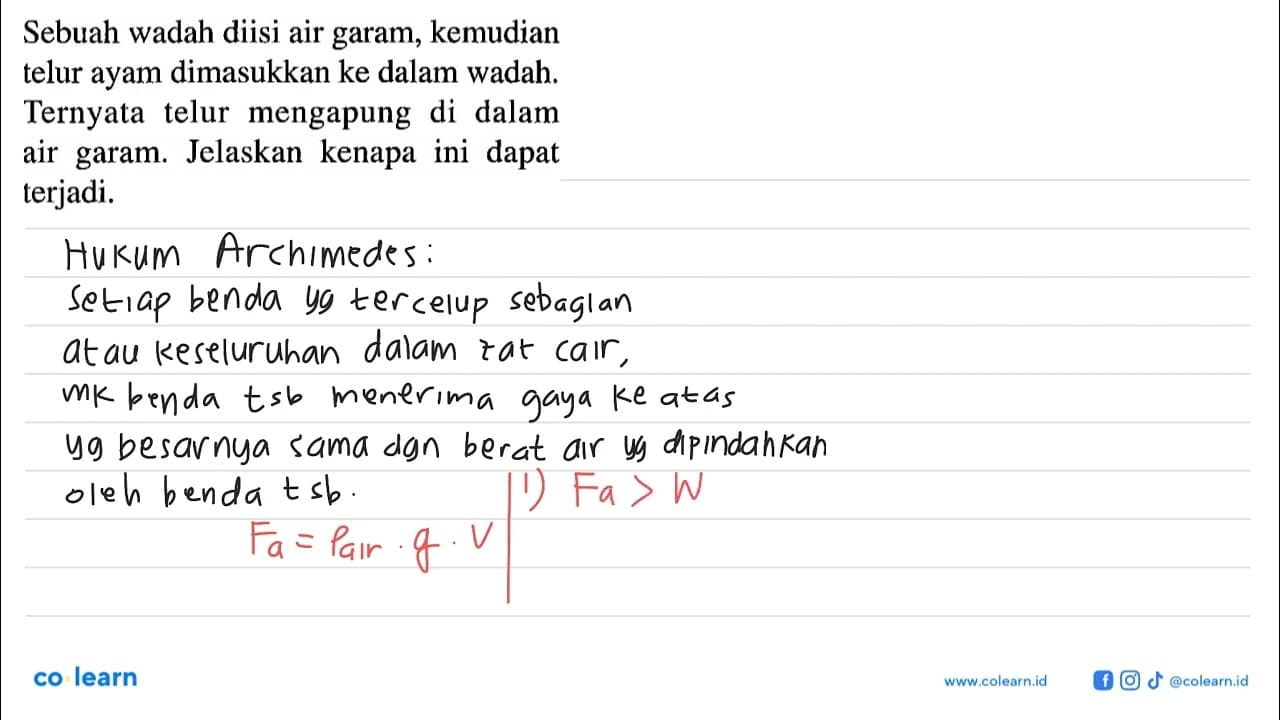 Sebuah wadah diisi air garam, kemudian
telur ayam dimasukkan ke dalam wadah.
Ternyata telur mengapung di dalam
air garam. Jelaskan kenapa ini dapat
terjadi.
Hukum Archimedes:
Setiap benda yg tercelup sebagian
atau keseluruhan dalam zat cair,
mk benda tsb menerima gaya ke atas
yg besarnya sama dgn berat air yg dipindahkan
oleh benda tsb.
1) Fa > W
Fa = ρair . g . V
co learn
www.colearn.id
@colearn.id